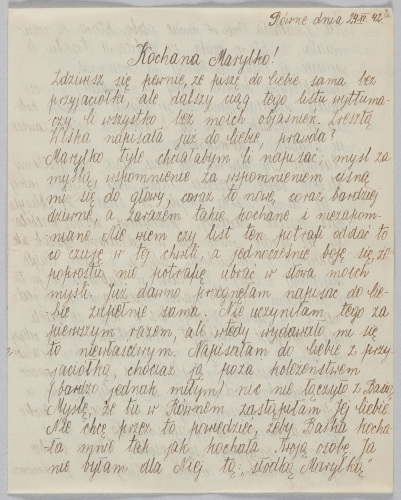 Równe dnia 24.VI.42.
Kochana Marylko!
Zdziwisz się pewnie, że piszę do Ciebie sama bez
przyjaciółki, ale dalszy ciąg tego listu wytłuma-
czy Ci wszystko bez moich objaśnień. Zresztą
napisała już do Ciebie, prawda?
Marylko tyle chciałabym Ci napisać, myśl za
myślą, wspomnienie za wspomnieniem cisną
mi się do głowy, coraz to nowe, coraz bardziej
dziwne, a zarazem takie kochane i niezapom-
niane. Nie wiem czy list ten potrafi oddać to
co czuję w tej chwili, a jednocześnie boję się, że
poprostu nie potrafię ubrać w słowa moich
myśli. Już dawno pragnęłam napisać do Cie-
bie zupełnie sama. Nie uczyniłam tego za
pierwszym razem, ale wtedy wydawało mi się
to niewłaściwym. Napisałam do Ciebie z przy-
jaciółką, chociaż ją poza koleżeństwem
(bardzo jednak miłym) nic nie łączyło z Basią.
Myślę, że tu w Równem zastąpiłam Jej Ciebie.
Nie chcę przez to powiedzieć, żeby Baśka kocha-
ła mnie tak jak kochała Twoją osobę. Ja
nie byłam dla Niej tą „słodką Marylką”